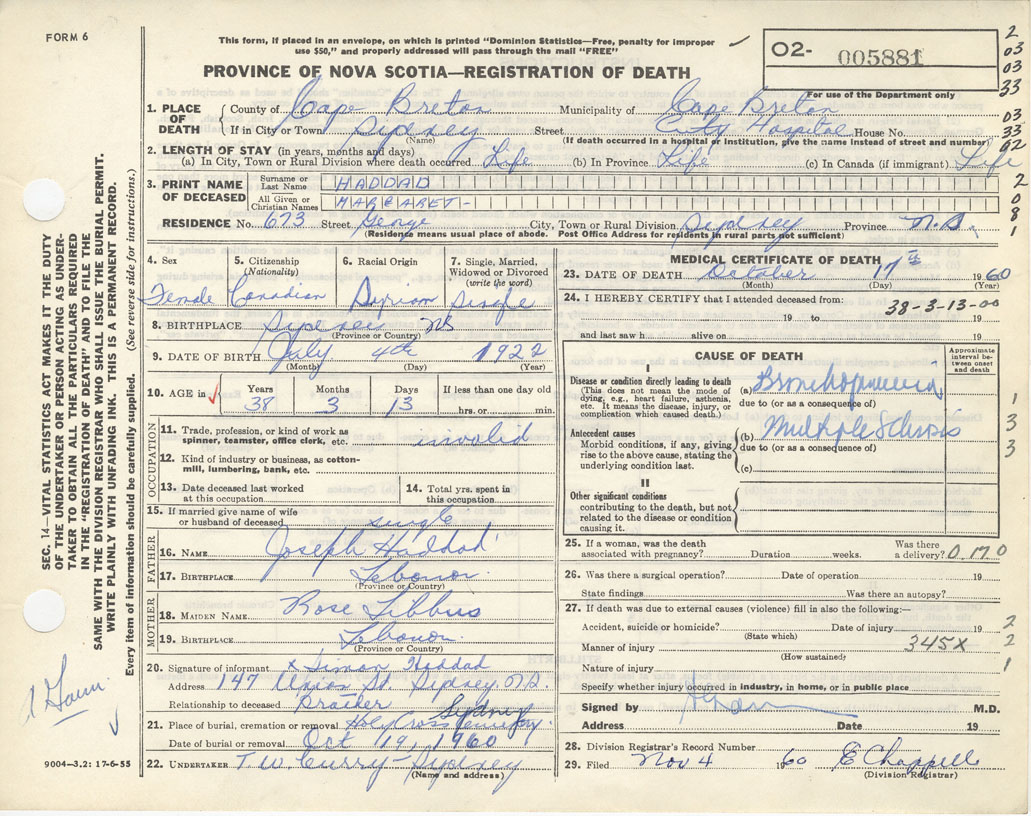 FORM 6
This form, if placed in an envelope, on which is printed "Dominion Statistics—Free, penalty for improper
use $50," and properly addressed will pass through the mail "FREE"
O2- 005881
For use of the Department only
PROVINCE OF NOVA SCOTIA—REGISTRATION OF DEATH
2
03
03
33
03
33
92
2
0
8
1
1. PLACE OF DEATH
County of Cape Breton Municipality of Cape Breton
If in City or Town Sydney Street City Hospital House No.
(Name) (If death occurred in a hospital or institution, give the name instead of street and number)
2. LENGTH OF STAY (in years, months and days)
(a) In City, Town or Rural Division where death occurred Life (b) In Province Life (c) In Canada (if immigrant) Life
3. PRINT NAME OF DECEASED
Surname or Last Name HADDAD
All Given or Christian Names MARGARET-
RESIDENCE No. 673 Street George City, Town or Rural Division Sydney Province N.S.
(Residence means usual place of abode. Post Office Address for residents in rural parts not sufficient)
4. Sex Female
5. Citizenship (Nationality) Canadian
6. Racial Origin Syrian
7. Single, Married, Widowed or Divorced (write the word) Single
8. BIRTHPLACE Sydney NS
(Province or Country)
9. DATE OF BIRTH July 4th 1922
(Month) (Day) (Year)
10. AGE in Years 38 Months 3 Days 13 If less than one day old hrs. or min.
OCCUPATION
11. Trade, profession, or kind of work as spinner, teamster, office clerk, etc. invalid
12. Kind of industry or business, as cotton-mill, lumbering, bank, etc.
13. Date deceased last worked at this occupation
14. Total yrs. spent in this occupation
15. If married give name of wife or husband of deceased single
FATHER
16. NAME Joseph Haddad
17. BIRTHPLACE Lebonon
(Province or Country)
MOTHER
18. MAIDEN NAME Rose Libbus
19. BIRTHPLACE Lebonon
(Province or Country)
20. Signature of informant x Simon Haddad
Address 147 Union St Sydney N.S.
Relationship to deceased Brother
21. Place of burial, cremation or removal Holy Cross Cemetery Sydney
Date of burial or removal Oct 19, 1960
22. UNDERTAKER T.W. Curry - Sydney
(Name and address)
MEDICAL CERTIFICATE OF DEATH
23. DATE OF DEATH October 17th 1960
(Month) (Day) (Year)
24. I HEREBY CERTIFY that I attended deceased from:
38-3-13-00
19 to 19
and last saw h alive on 19
CAUSE OF DEATH
Approximate interval between onset and death
I
Disease or condition directly leading to death (This does not mean the mode of dying, e.g., heart failure, asthenia, etc. It means the disease, injury, or complication which caused death.)
(a) Bronchopneumonia
due to (or as a consequence of)
Antecedent causes
Morbid conditions, if any, giving rise to the above cause, stating the underlying condition last.
(b) Multiple Sclerosis
due to (or as a consequence of)
(c)
1
3
3
3
II
Other significant conditions contributing to the death, but not related to the disease or condition causing it.
25. If a woman, was the death associated with pregnancy? Duration weeks. Was there a delivery? 0.170
26. Was there a surgical operation? Date of operation 19
State findings Was there an autopsy?
27. If death was due to external causes (violence) fill in also the following:—
Accident, suicide or homicide? Date of injury 19
(State which)
Manner of injury 345X
(How sustained?)
Nature of injury
2
2
1
Specify whether injury occurred in industry, in home, or in public place
Signed by M.D.
Address Date 19
28. Division Registrar's Record Number
29. Filed Nov 4 1960 E Chappell
(Division Registrar)
SEC. 14—VITAL STATISTICS ACT MAKES IT THE DUTY
OF THE UNDERTAKER OR PERSON ACTING AS UNDER-
TAKER TO OBTAIN ALL THE PARTICULARS REQUIRED
IN THE "REGISTRATION OF DEATH" AND TO FILE THE
SAME WITH THE DIVISION REGISTRAR WHO SHALL ISSUE THE BURIAL PERMIT.
WRITE PLAINLY WITH UNFADING INK. THIS IS A PERMANENT RECORD.
Every item of information should be carefully supplied. (See reverse side for instructions.)
9004—3,2: 17-6-55